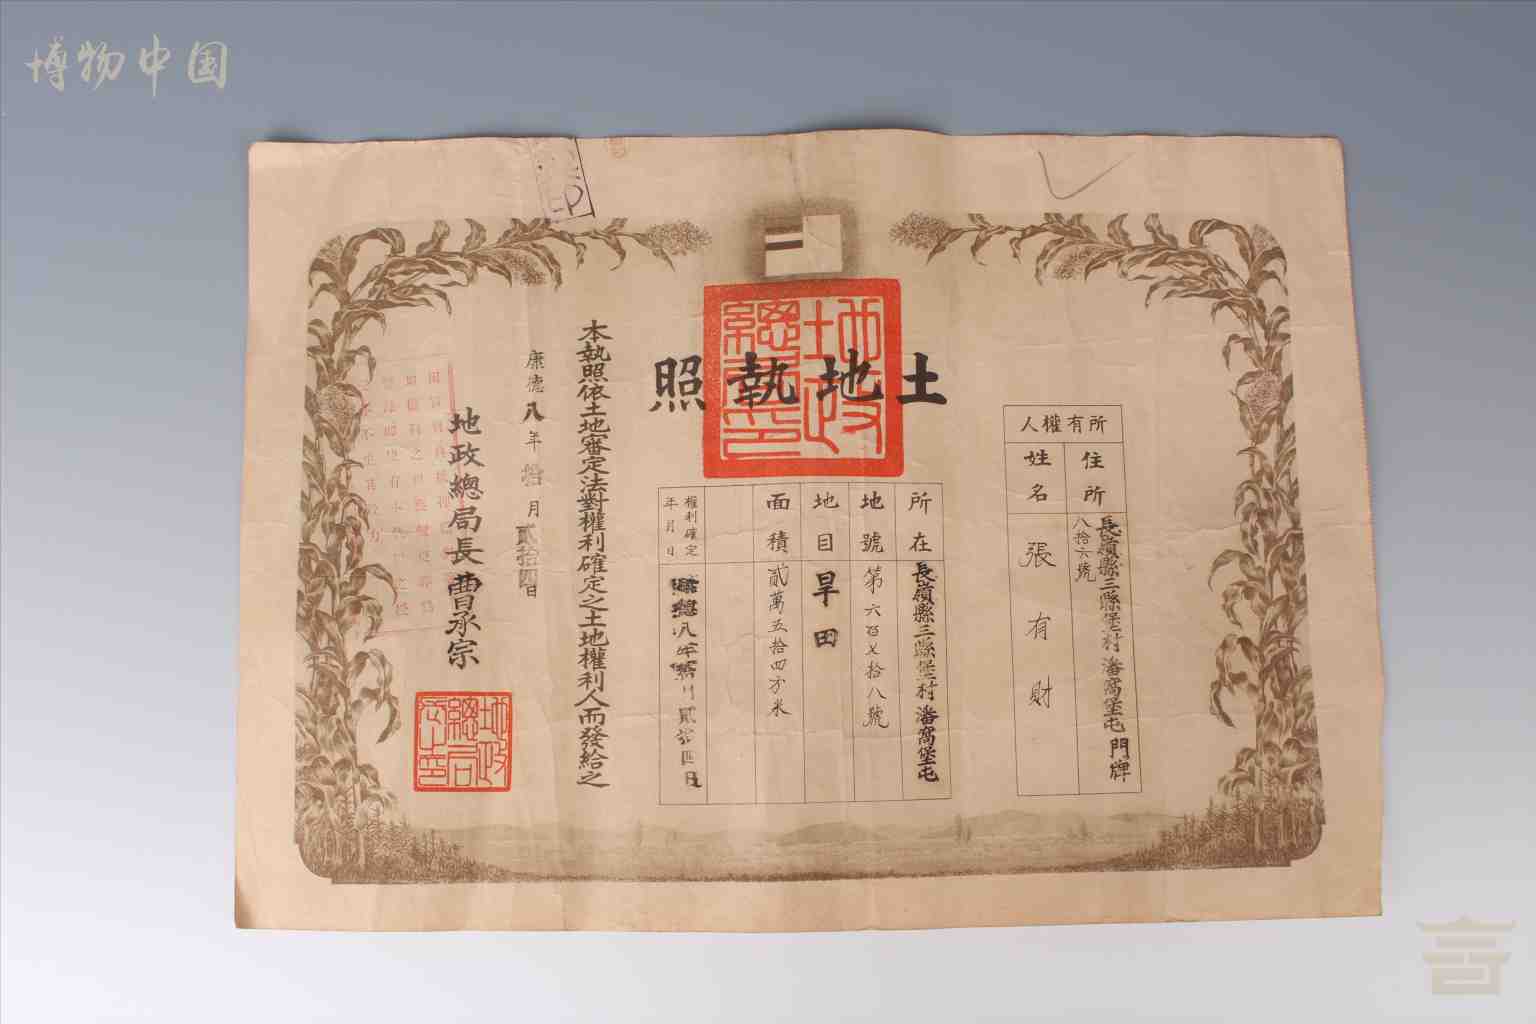 博物中国
土地執照
所有權人
住所
長嶺縣三縣堡村潘窩堡屯門牌
八拾六號
姓名
張有財
所在
長嶺縣三縣堡村潘窩堡屯
地號
第六百七拾八號
地目
旱田
面積
貳萬五拾四方米
權利確定
年月日
康德八年拾月貳拾四日
本執照依土地審定法對權利確定之土地權利人而發給之
康德八年拾月貳拾四日
地政總局長曹承宗